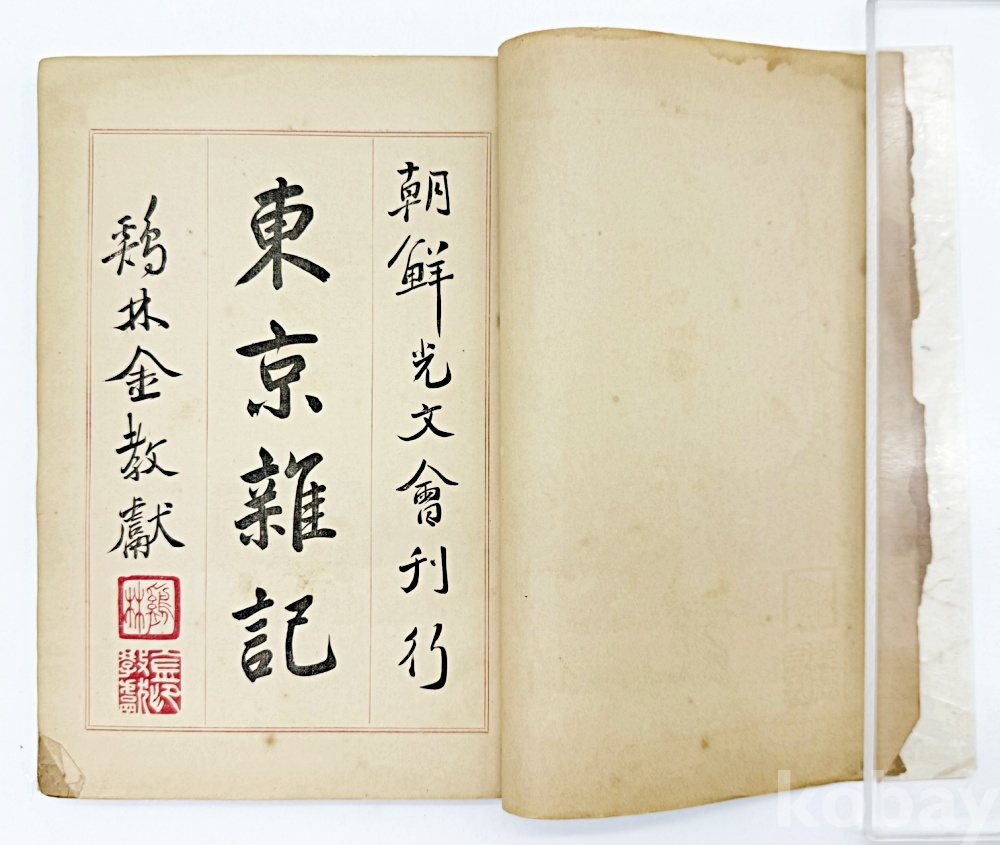 朝鮮光文會刊行
東京雜記
鶏林金教獻
鷄林
kobay